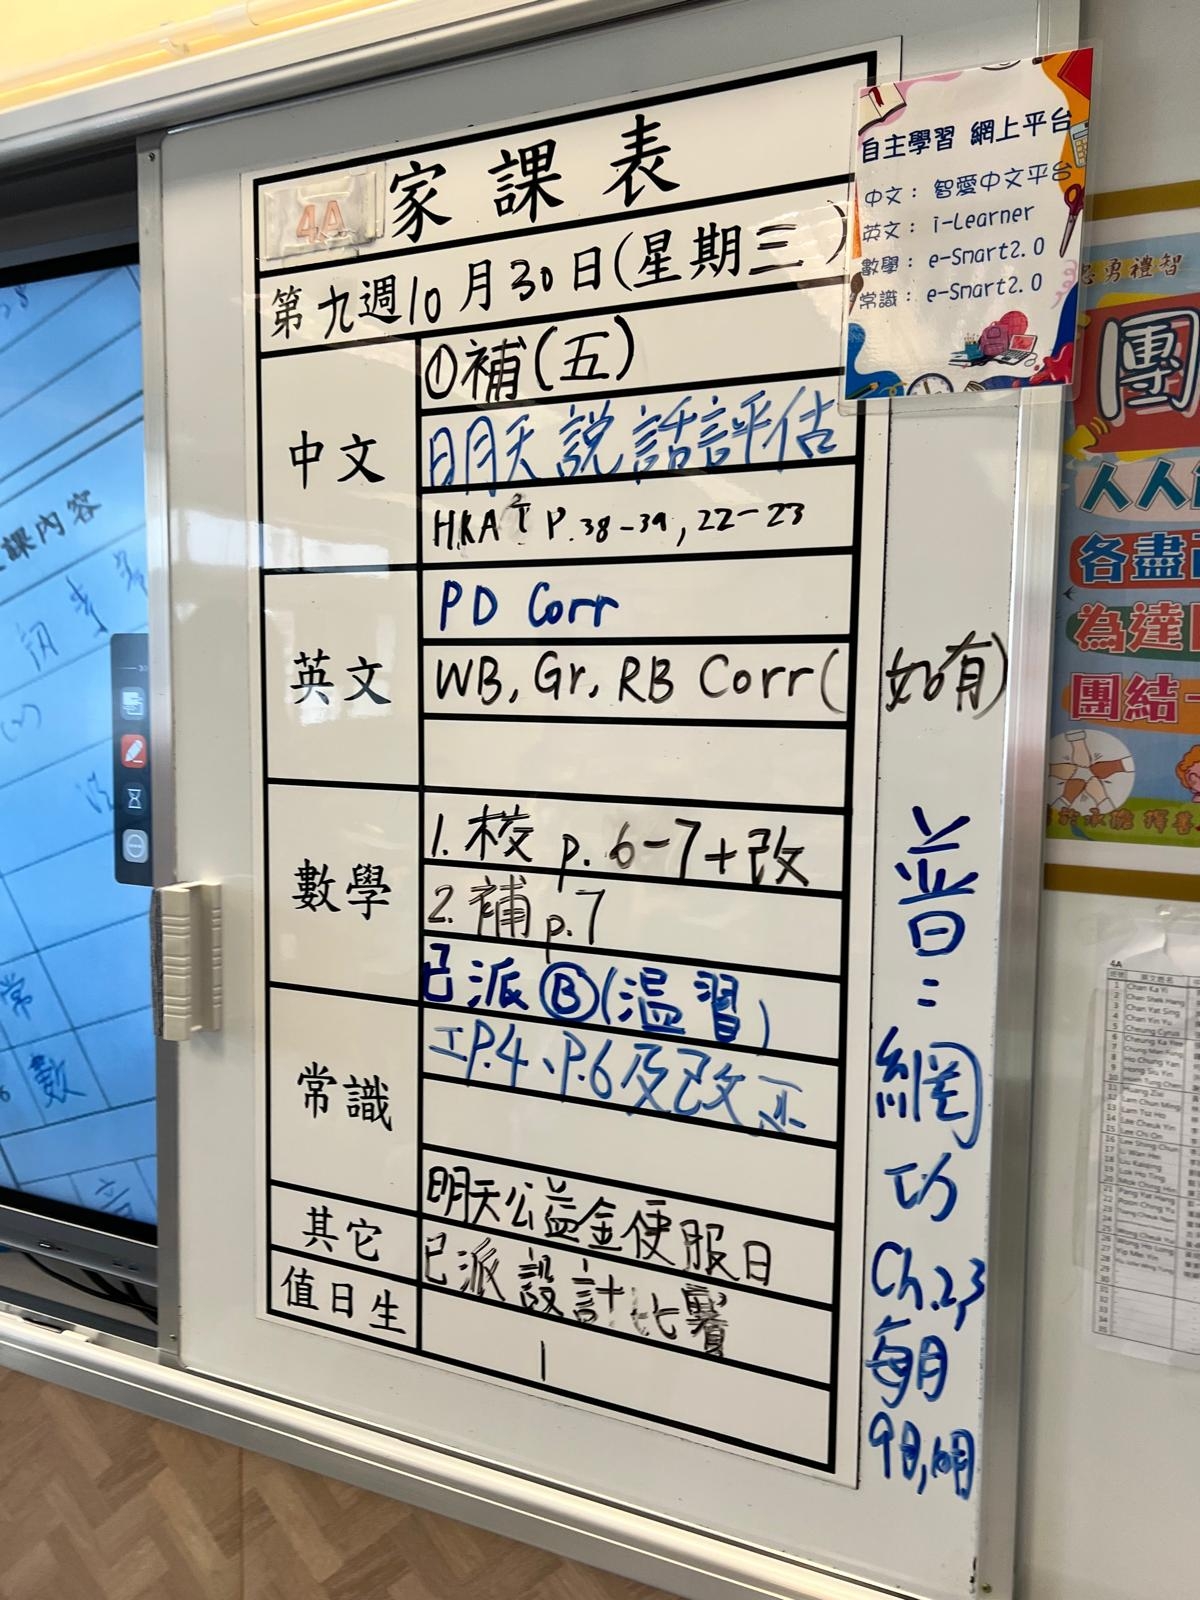 4A 家課表
第九週10月30日(星期三)
中文
①補(五)
明天說話評估
HKAT P.38-39, 22-23
英文
PD Corr
WB, Gr, RB Corr(如有)
數學
1. 校 p. 6-7+改
2. 補 p.7
已派Ⓑ(溫習)
常識
工P.4、P.6及改正
其它
明天公益金便服日
已派設計比賽
值日生
1
普:網功
Ch.2,3
每月
9日,
自主學習 網上平台
中文: 智愛中文平台
英文: i-Learner
數學: e-Smart2.0
常識: e-Smart2.0
勇禮智
團
人人
各盡
為達
團結一
課內容
常
數
4A
Chan Ka Yi
Chan Shek Hang
Chan Yat Sing
Chan Yin Yu